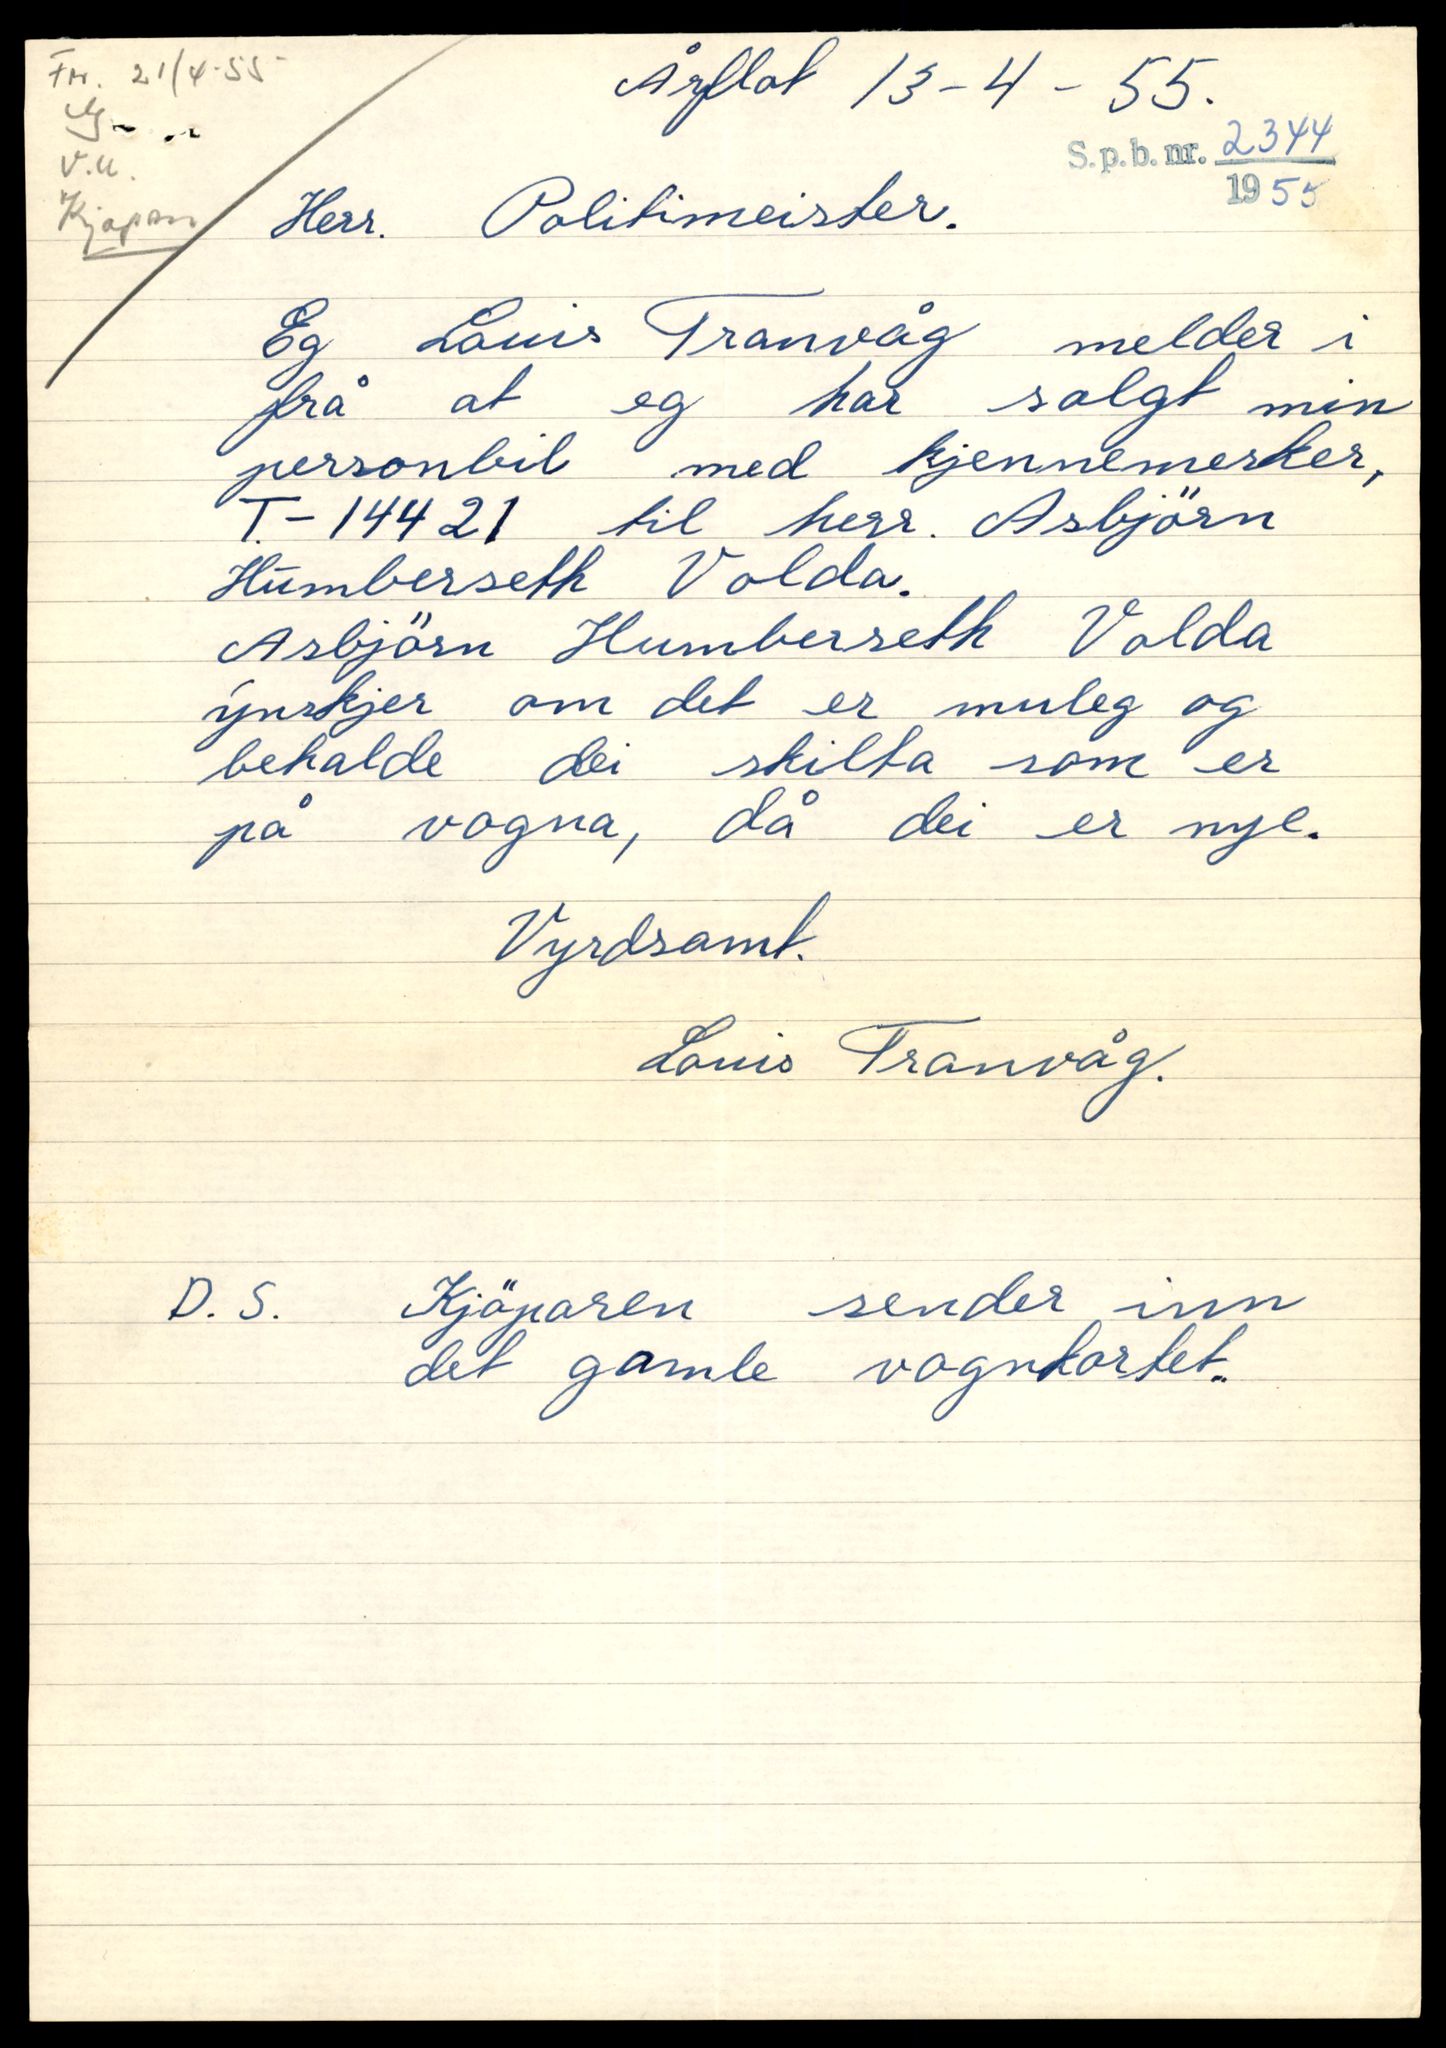 Fr. 21/4-55
V.U.
Kjøparen
Årflot 13-4-55.
S.p.b.nr. 2344
1955
Herr. Politimeister.
Eg Louis Tranvåg melder i
frå at eg har solgt min
personbil med kjennemerker,
T.-14421 til herr. Asbjörn
Humberseth Volda.
Asbjörn Humberseth Volda
ynskjer om det er muleg og
behalde dei skilta som er
på vogna, då dei er nye.
Vyrdsamt.
Louis Tranvåg.
D.S. Kjöparen sender inn
det gamle vognkortet.